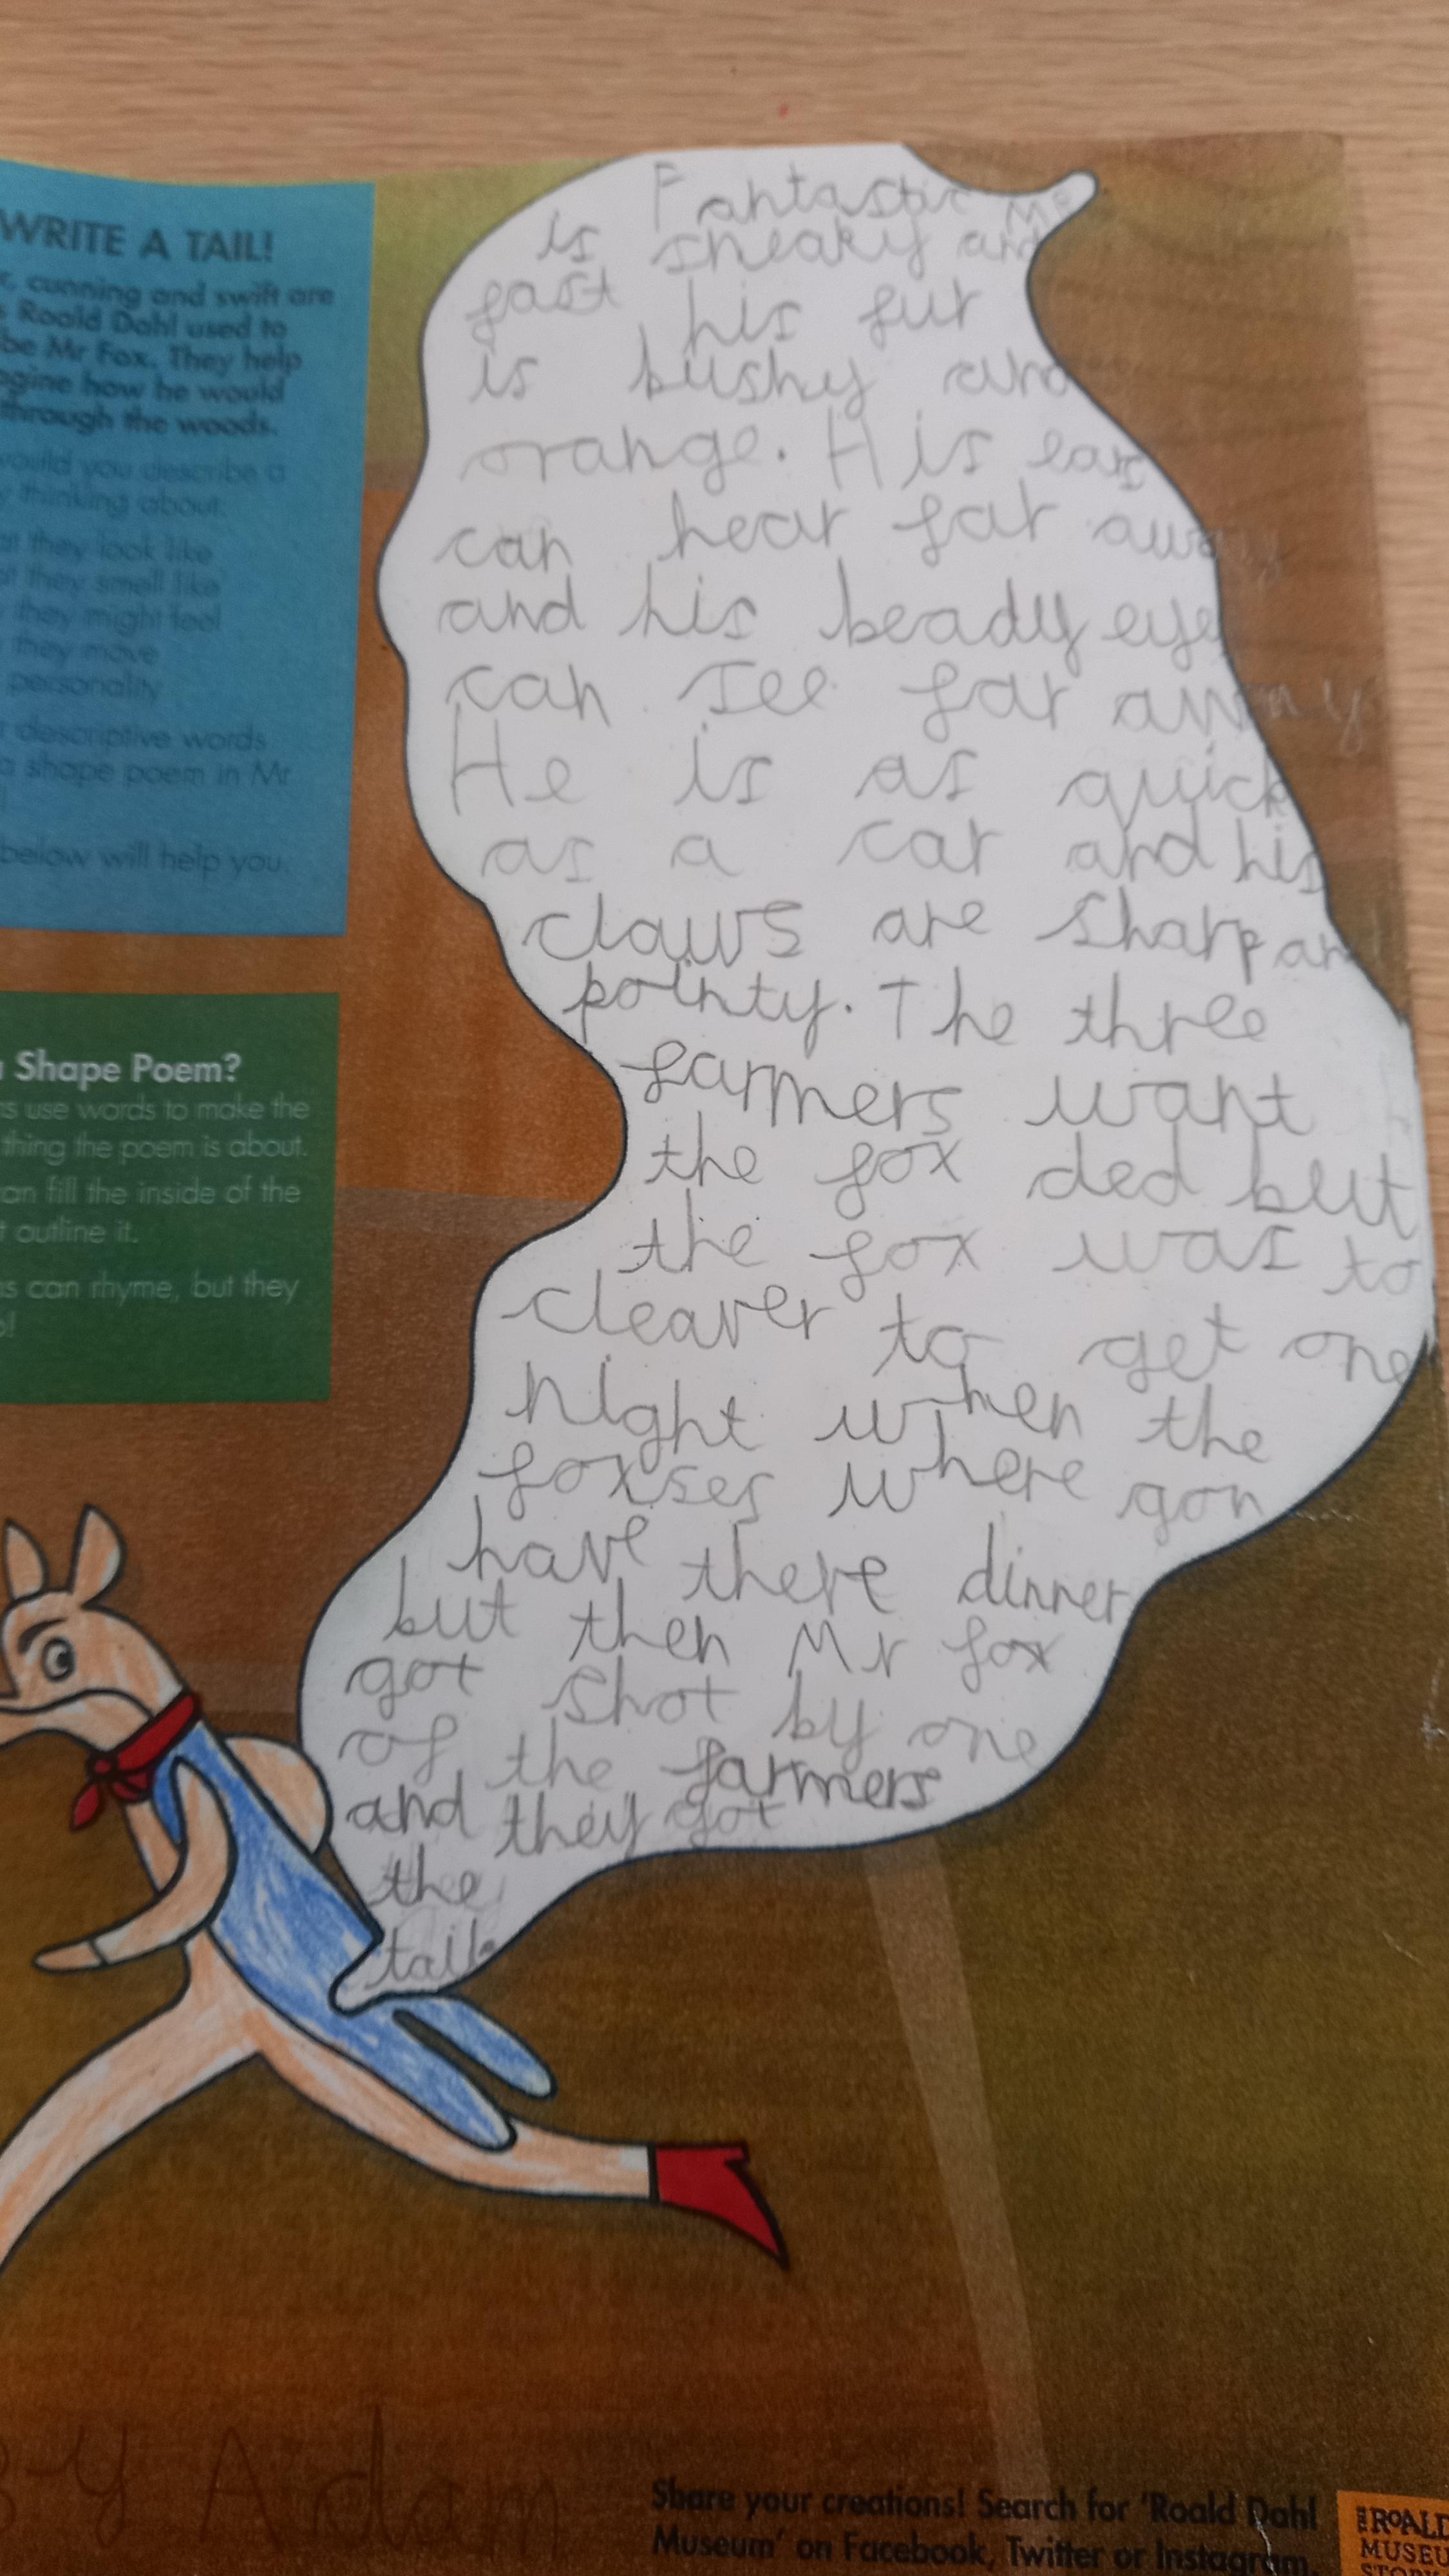 WRITE A TAIL!
cunning and swift are
Roald Dahl used to
be Mr Fox. They help
agine how he would
through the woods.
would you describe a
thinking about
at they look like
at they smell like
they might feel
they move
personality
descriptive words
a shape poem in Mr
below will help you.
Shape Poem?
ns use words to make the
thing the poem is about.
an fill the inside of the
t outline it.
ns can rhyme, but they
Fantastic Mr
is sneaky and
fast his fur
is bushy and
orange. His ears
can hear far away
and his beady eye
can see far away
He is as quick
as a car and his
claws are sharp an
pointy. The three
farmers want
the fox ded but
the fox was to
cleaver to get one
night when the
foxses where gon
have there dinner
but then Mr fox
got shot by one
of the farmers
and they got
the
tail.
By Adam
Share your creations! Search for 'Roald Dahl
Museum' on Facebook, Twitter or Instagram.
THE ROALD
MUSEU